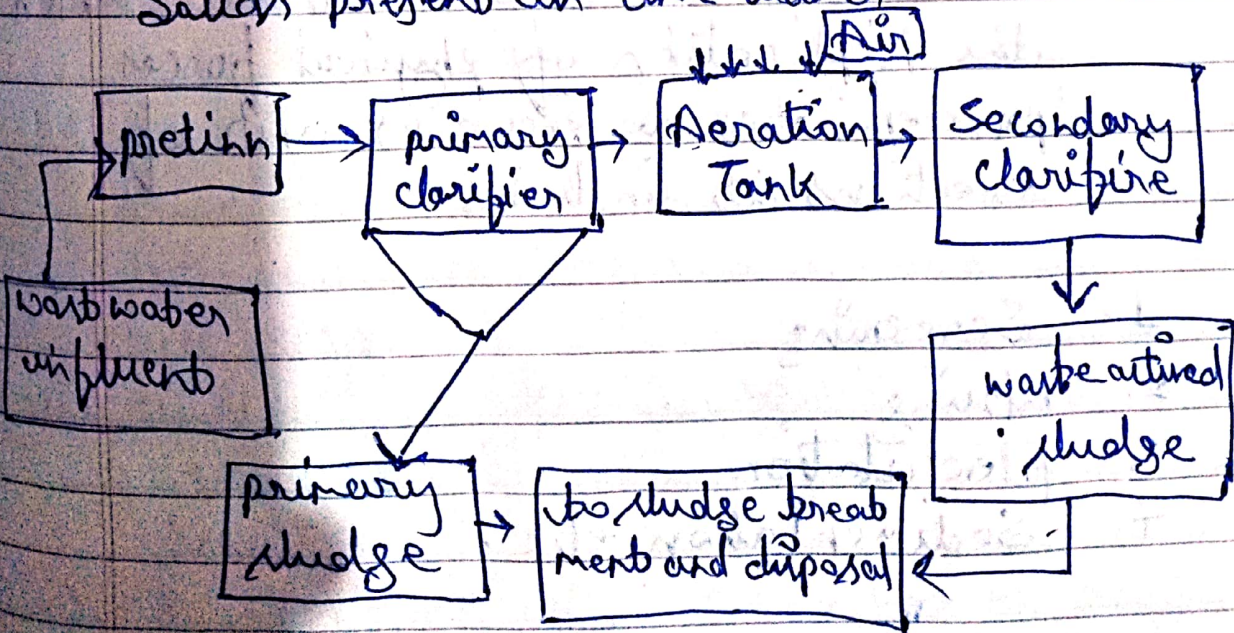 present in
Air
pretinn
primary
clarifier
Aeration
Tank
Secondary
clarifire
wastwater
influent
waste actived
sludge
primary
sludge
to sludge treat
ment and disposal